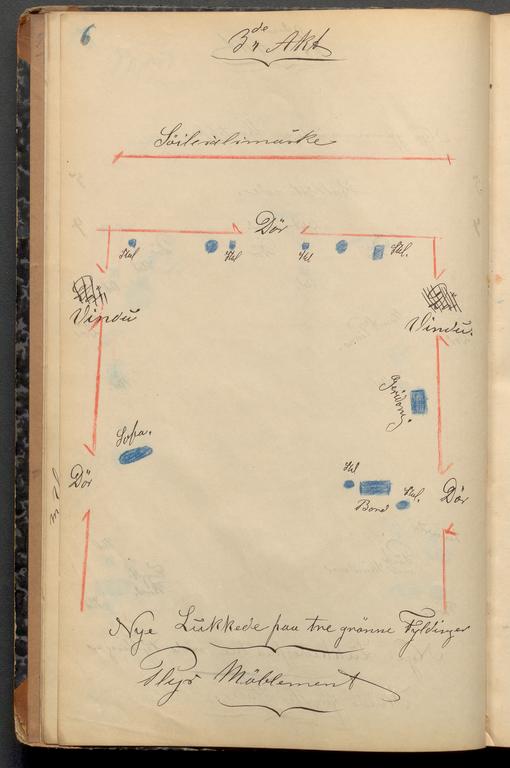 6
3de Akt
Dör
Stol
Stol
Stol
Stol.
Vindu
Vindu.
Sofa.
Dör
Stol
Stol.
Bord
Dör
Nye Lukkede paa tre grönne Fyldinger
Plys Möblement